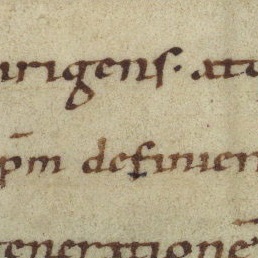 irigens. att
pm̄ definier
eneratione